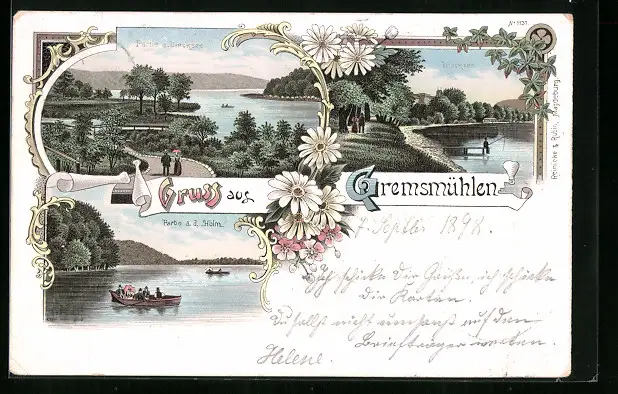 No 1131.
Partie a. Diecksee
Diecksee
Reinicke & Rubin, Magdeburg
Gruss aus Gremsmühlen
Partie a. d. Holm
7. Septbr 1898.
Ich schicke Dir Grüße, ich schicke
Dir Karten.
Du sollst nicht umsonst auf den
Briefträger warten.
Helene.